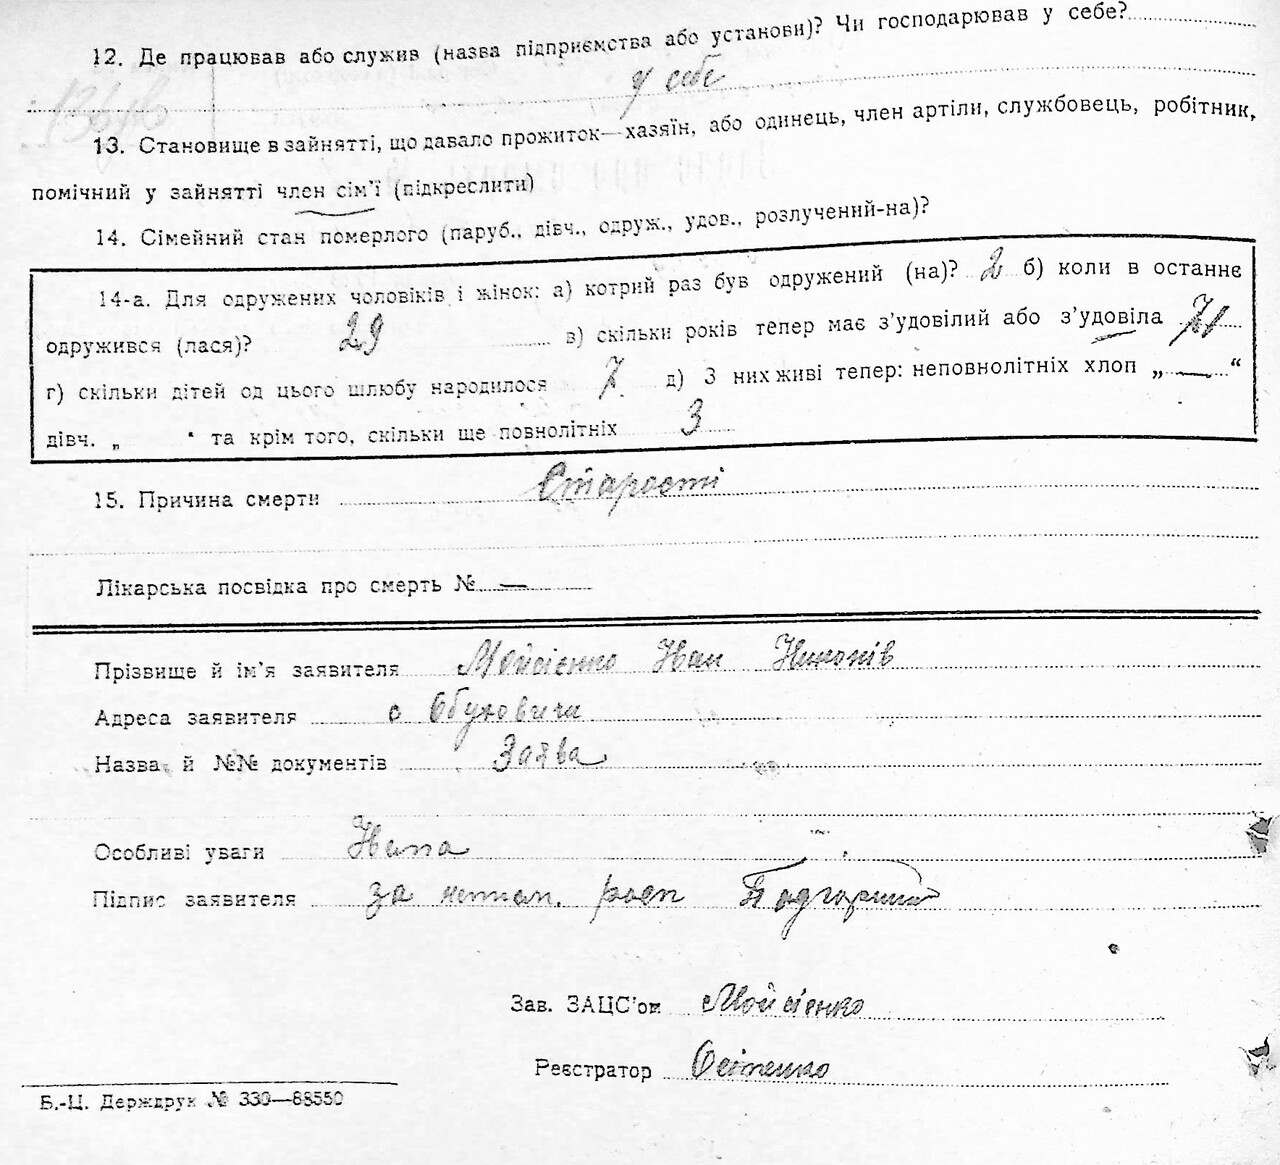 12. Де працював або служив (назва підприємства або установи)? Чи господарював у себе?
у себе
13. Становище в зайнятті, що давало прожиток—хазяїн, або одинець, член артіли, службовець, робітник,
помічний у зайнятті член сім'ї (підкреслити)
14. Сімейний стан померлого (паруб., дівч., одруж., удов., розлучений-на)?
14-а. Для одружених чоловіків і жінок: а) котрий раз був одружений (на)? 2 б) коли в останнє
одружився (лася)? 29 в) скільки років тепер має з'удовілий або з'удовіла 71
г) скільки дітей од цього шлюбу народилося 7 д) З них живі тепер: неповнолітніх хлоп „ — “
дівч. „ “ та крім того, скільки ще повнолітніх 3
15. Причина смерти Старости
Лікарська посвідка про смерть № —
Прізвище й ім'я заявителя Мойсієнко Иван Никонів
Адреса заявителя с Обуховичи
Назва й №№ документів Заява
Особливі уваги Нема
Підпис заявителя за непис. росп
Зав. ЗАЦС'ом Мойсієнко
Реєстратор Осіпенко
Б.-Ц. Держдрук № 330—88550